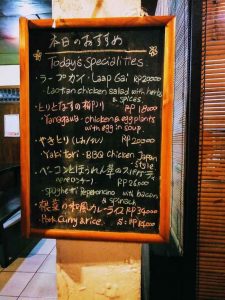 本日のおすすめ
Today's Specialities.
・ラープ カイ・Laap Gai Rp 20000
・Laotian chicken salad with herbs & spices
・とりとなすの柳川 Rp 18000
・Yanagawa・chicken & egg plants with egg in soup.
・やきとり Rp 20000
・Yakitori・BBQ chicken Japan style
・ベーコンとほうれん草のスパゲティ
Rp 26000
・Spaghetti Peperoncino with bacon & spinach
和風カレーライス Rp 34000
・Pork Curry & rice.